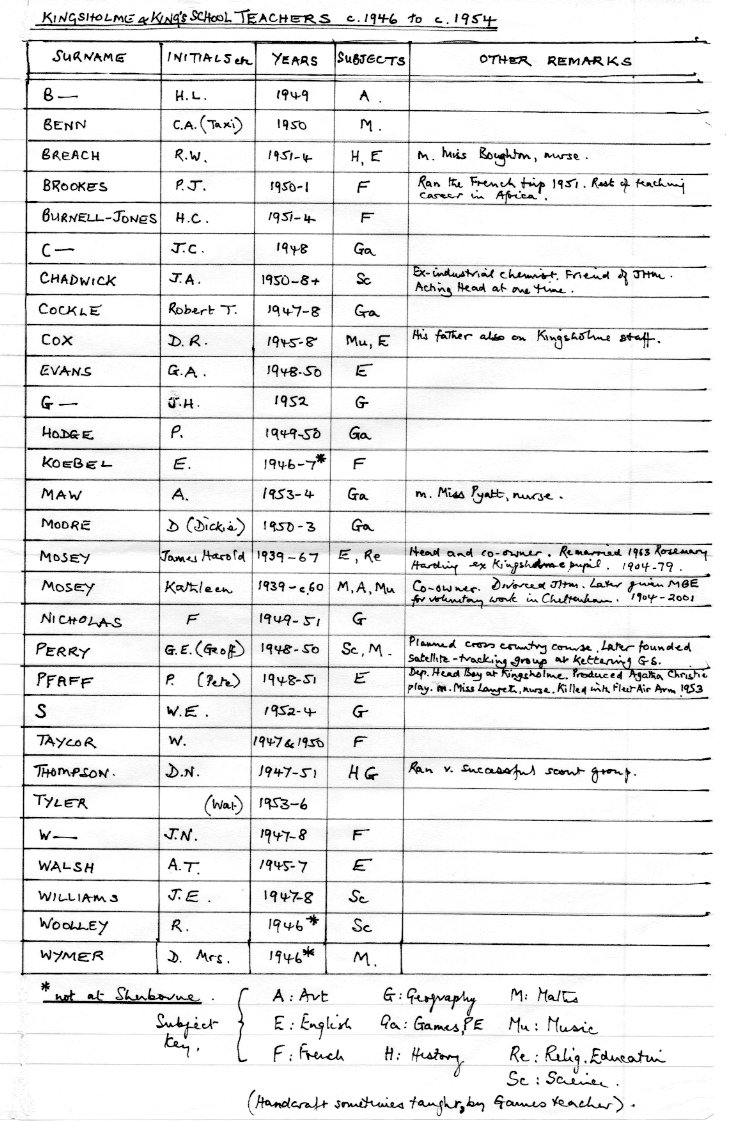 KINGSHOLME & KING'S SCHOOL TEACHERS c.1946 to c.1954
SURNAME INITIALS etc YEARS SUBJECTS OTHER REMARKS
B— H.L. 1949 A.
BENN C.A. (Taxi) 1950 M.
BREACH R.W. 1951-4 H, E m. Miss Boughton, nurse.
BROOKES P.J. 1950-1 F Ran the French trip 1951. Rest of teaching
career in Africa.
BURNELL-JONES H.C. 1951-4 F
C— J.C. 1948 Ga
CHADWICK J.A. 1950-8+ Sc Ex-industrial chemist. Friend of JHM.
Acting Head at one time.
COCKLE Robert T. 1947-8 Ga
COX D.R. 1945-8 Mu, E His father also on Kingsholme staff.
EVANS G.A. 1948-50 E
G— J.H. 1952 G
HODGE P. 1949-50 Ga
KOEBEL E. 1946-7* F
MAW A. 1953-4 Ga m. Miss Pyatt, nurse.
MOORE D (Dickie) 1950-3 Ga
MOSEY James Harold 1939-67 E, Re Head and co-owner. Remarried 1963 Rosemary
Harding ex Kingsholme pupil. 1904-79.
MOSEY Kathleen 1939-c.60 M, A, Mu Co-owner. Divorced JHM. Later given MBE
for voluntary work in Cheltenham. 1904-2001
NICHOLAS F 1949-51 G
PERRY G.E. (Geoff) 1948-50 Sc, M. Planned cross country course. Later founded
satellite-tracking group at Kettering G.S.
PFAFF P. (Pete) 1948-51 E Dep. Head Boy at Kingsholme. Produced Agatha Christie
play. m. Miss nurse. Killed with Fleet Air Arm 1953
S W.E. 1952-4 G
TAYLOR W. 1947 & 1950 F
THOMPSON. D.N. 1947-51 H G Ran v. successful scout group.
TYLER (Wat) 1953-6
W— J.N. 1947-8 F
WALSH A.T. 1945-7 E
WILLIAMS J.E. 1947-8 Sc
WOOLLEY R. 1946* Sc
WYMER D. Mrs. 1946* M.
* not at Sherborne. A: Art G: Geography M: Maths
Subject E: English Ga: Games, PE Mu: Music
Key. F: French H: History Re: Relig. Education
Sc: Science.
(Handcraft sometimes taught, by Games teacher).